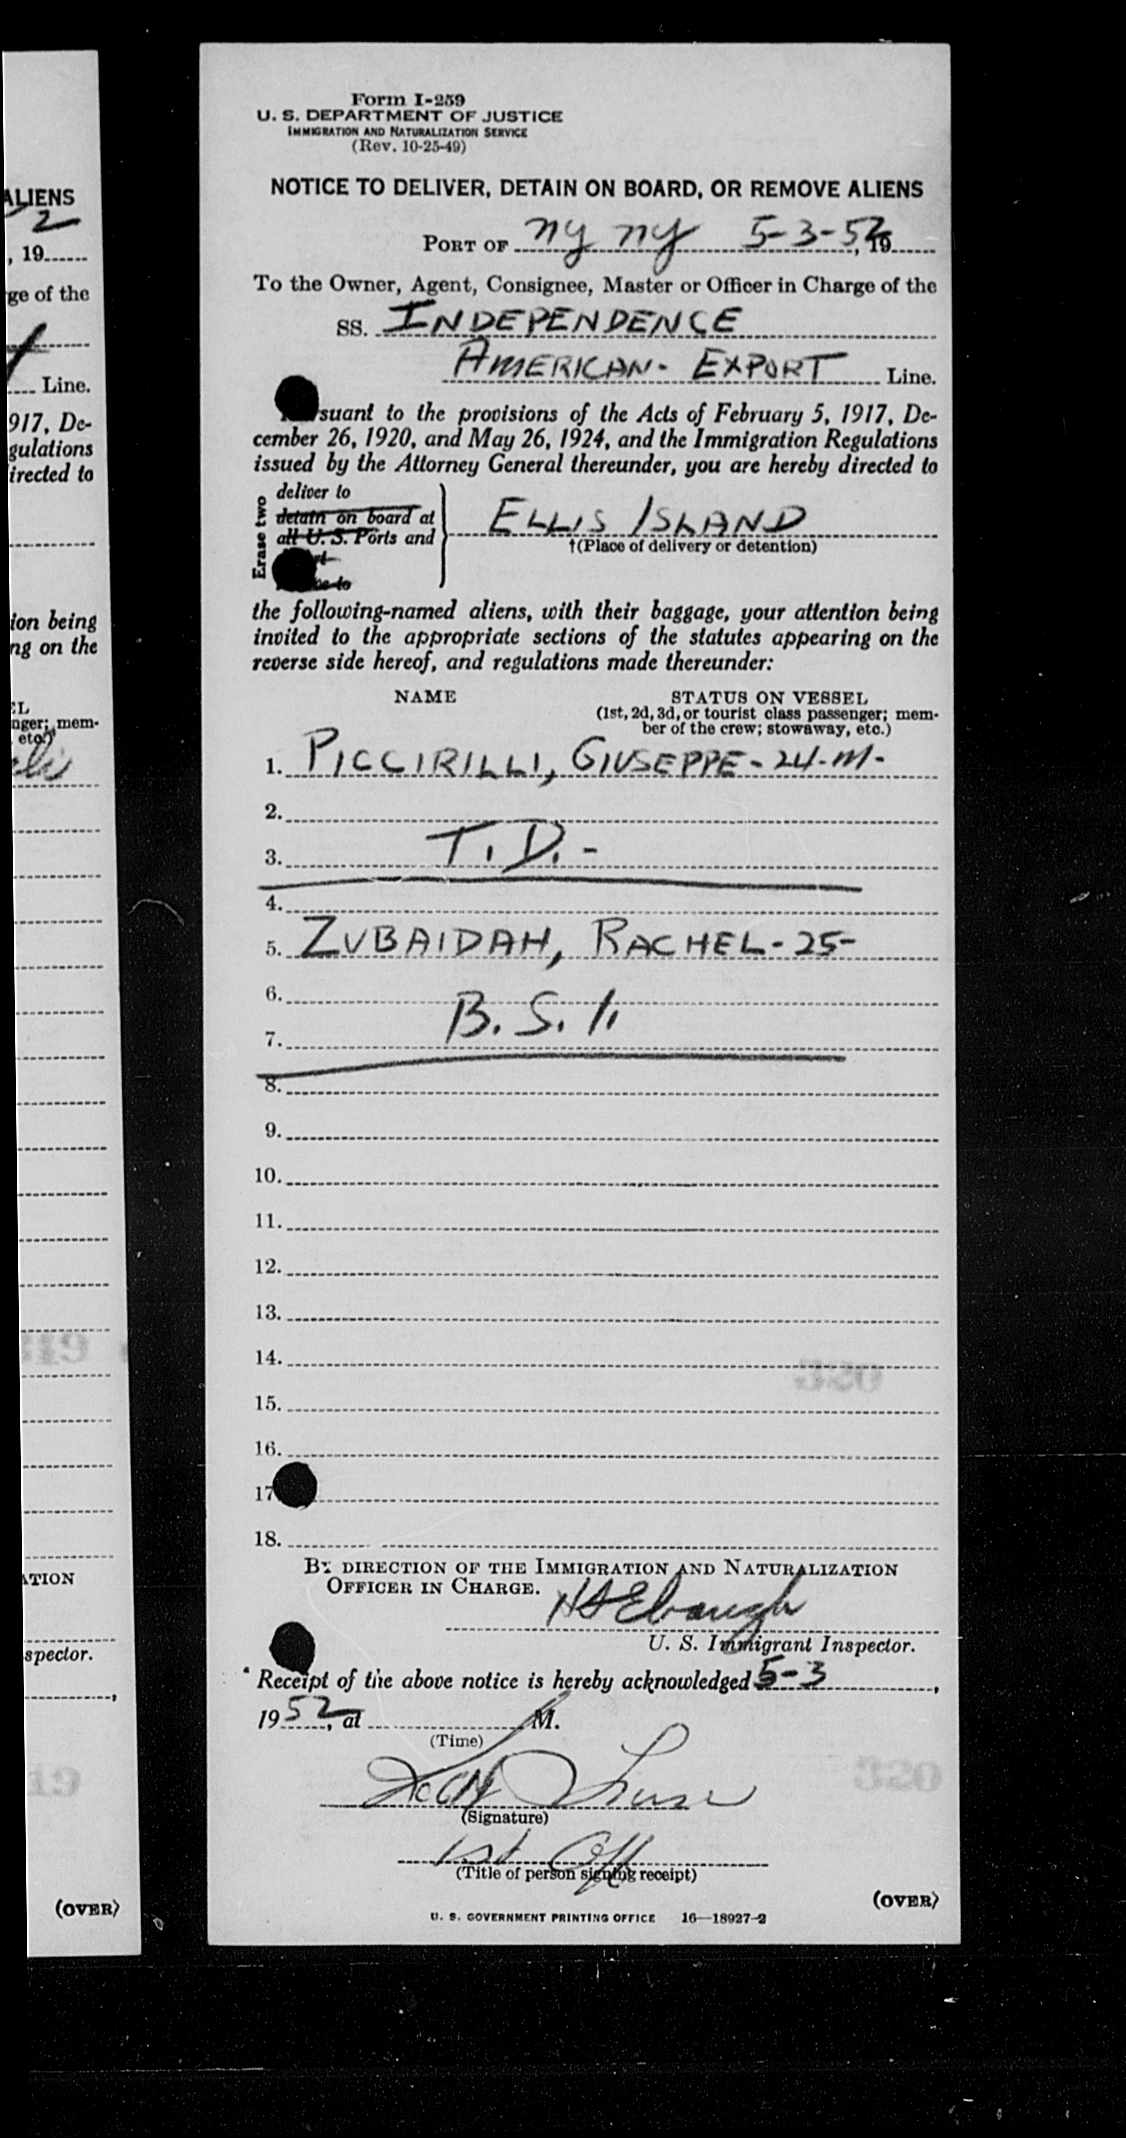 ALIENS
2
, 19
ge of the
Line.
917, De-
gulations
irected to
ion being
ng on the
EL
nger; mem-
etc.)
ATION
spector.
19
(OVER)
Form I-259
U. S. DEPARTMENT OF JUSTICE
IMMIGRATION AND NATURALIZATION SERVICE
(Rev. 10-25-49)
NOTICE TO DELIVER, DETAIN ON BOARD, OR REMOVE ALIENS
PORT OF NY NY 5-3-52, 19
To the Owner, Agent, Consignee, Master or Officer in Charge of the
SS. INDEPENDENCE
AMERICAN- EXPORT Line.
suant to the provisions of the Acts of February 5, 1917, De-
cember 26, 1920, and May 26, 1924, and the Immigration Regulations
issued by the Attorney General thereunder, you are hereby directed to
Erase two
deliver to
detain on board at
all U. S. Ports and
ELLIS ISLAND
†(Place of delivery or detention)
the following-named aliens, with their baggage, your attention being
invited to the appropriate sections of the statutes appearing on the
reverse side hereof, and regulations made thereunder:
NAME STATUS ON VESSEL
(1st, 2d, 3d, or tourist class passenger; mem-
ber of the crew; stowaway, etc.)
1. PICCIRILLI, GIUSEPPE - 24-M-
2.
3. T. D. -
4.
5. ZUBAIDAH, RACHEL - 25-
6.
7. B. S. I.
8.
9.
10.
11.
12.
13.
14.
15.
16.
17
18.
BY DIRECTION OF THE IMMIGRATION AND NATURALIZATION
OFFICER IN CHARGE.
U. S. Immigrant Inspector.
Receipt of the above notice is hereby acknowledged 5-3,
1952, at M.
(Time)
(Signature)
1st Off
(Title of person signing receipt)
(OVER)
U. S. GOVERNMENT PRINTING OFFICE 16—18927-2